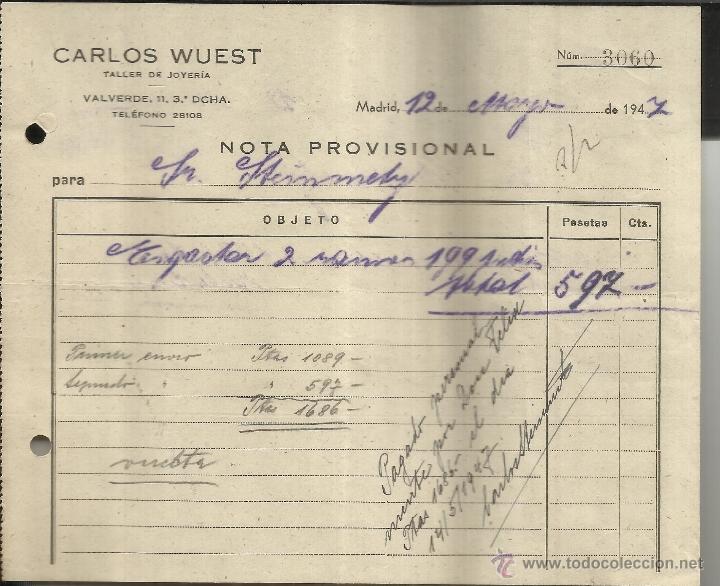 CARLOS WUEST
TALLER DE JOYERÍA
VALVERDE, 11, 3.º DCHA.
TELÉFONO 28108
Núm. 3060
Madrid, 12 de Mayo de 1947
NOTA PROVISIONAL
para Sr.
OBJETO Pesetas Cts.
Engastar 2 199
total 597 -
Primer envio Ptas 1089-
Segundo " " 597-
Ptas 1686-
vuelta
Pagado
mente por Don Felix
Ptas 1686 el día
14/5/1947
todocoleccion
www.todocoleccion.net